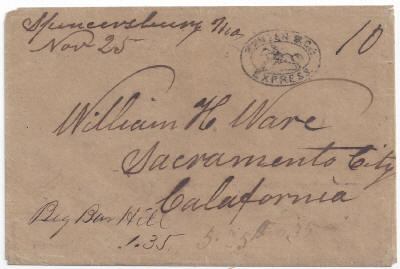 Spencersburg Mo
Nov 25
10
EXPRESS
William H Ware
Sacramento City
Calafornia
Big Bar Hill
1.35